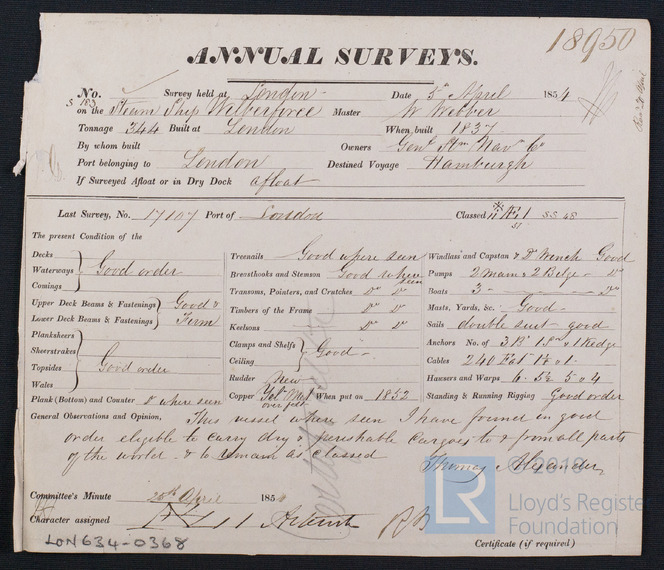 18950
ANNUAL SURVEYS.
No. Survey held at London Date 5th April 1854
on the Steam Ship Wilberforce Master W Webber
Tonnage 344 Built at London When built 1837
By whom built Owners Genl Stm Nav Co
Port belonging to London Destined Voyage Hamburgh
If Surveyed Afloat or in Dry Dock afloat
Last Survey, No. 17107 Port of London Classed SS 48
The present Condition of the
Decks
Waterways Good order
Comings
Upper Deck Beams & Fastenings Good &
Lower Deck Beams & Fastenings Firm
Planksheers
Sheerstrakes
Topsides Good order
Wales
Plank (Bottom) and Counter Do where seen
Treenails Good where seen
Breasthooks and Stemson Good where seen
Transoms, Pointers, and Crutches Do Do
Timbers of the Frame Do Do
Keelsons Do Do
Clamps and Shelfs Good
Ceiling
Rudder New
Copper Yel Metl over felt When put on 1852
Windlass and Capstan & Do Winch Good
Pumps 2 main & 2 Bilge Do
Boats 3 Do
Masts, Yards, &c. Good
Sails double suit good
Anchors No. of 3 Br 1 Sm 1 Kedge
Cables 240 Fat
Hawsers and Warps 6. 5½ 5 & 4
Standing & Running Rigging Good order
General Observations and Opinion, This vessel where seen I have found in good
order eligible to carry dry & perishable cargoes to & from all parts
of the world & to remain as classed
Thomas Alexander
Committee's Minute 20th April 185
Character assigned
LON634-0368
Certificate (if required)
© 2018
LR
Lloyd's Register
Foundation